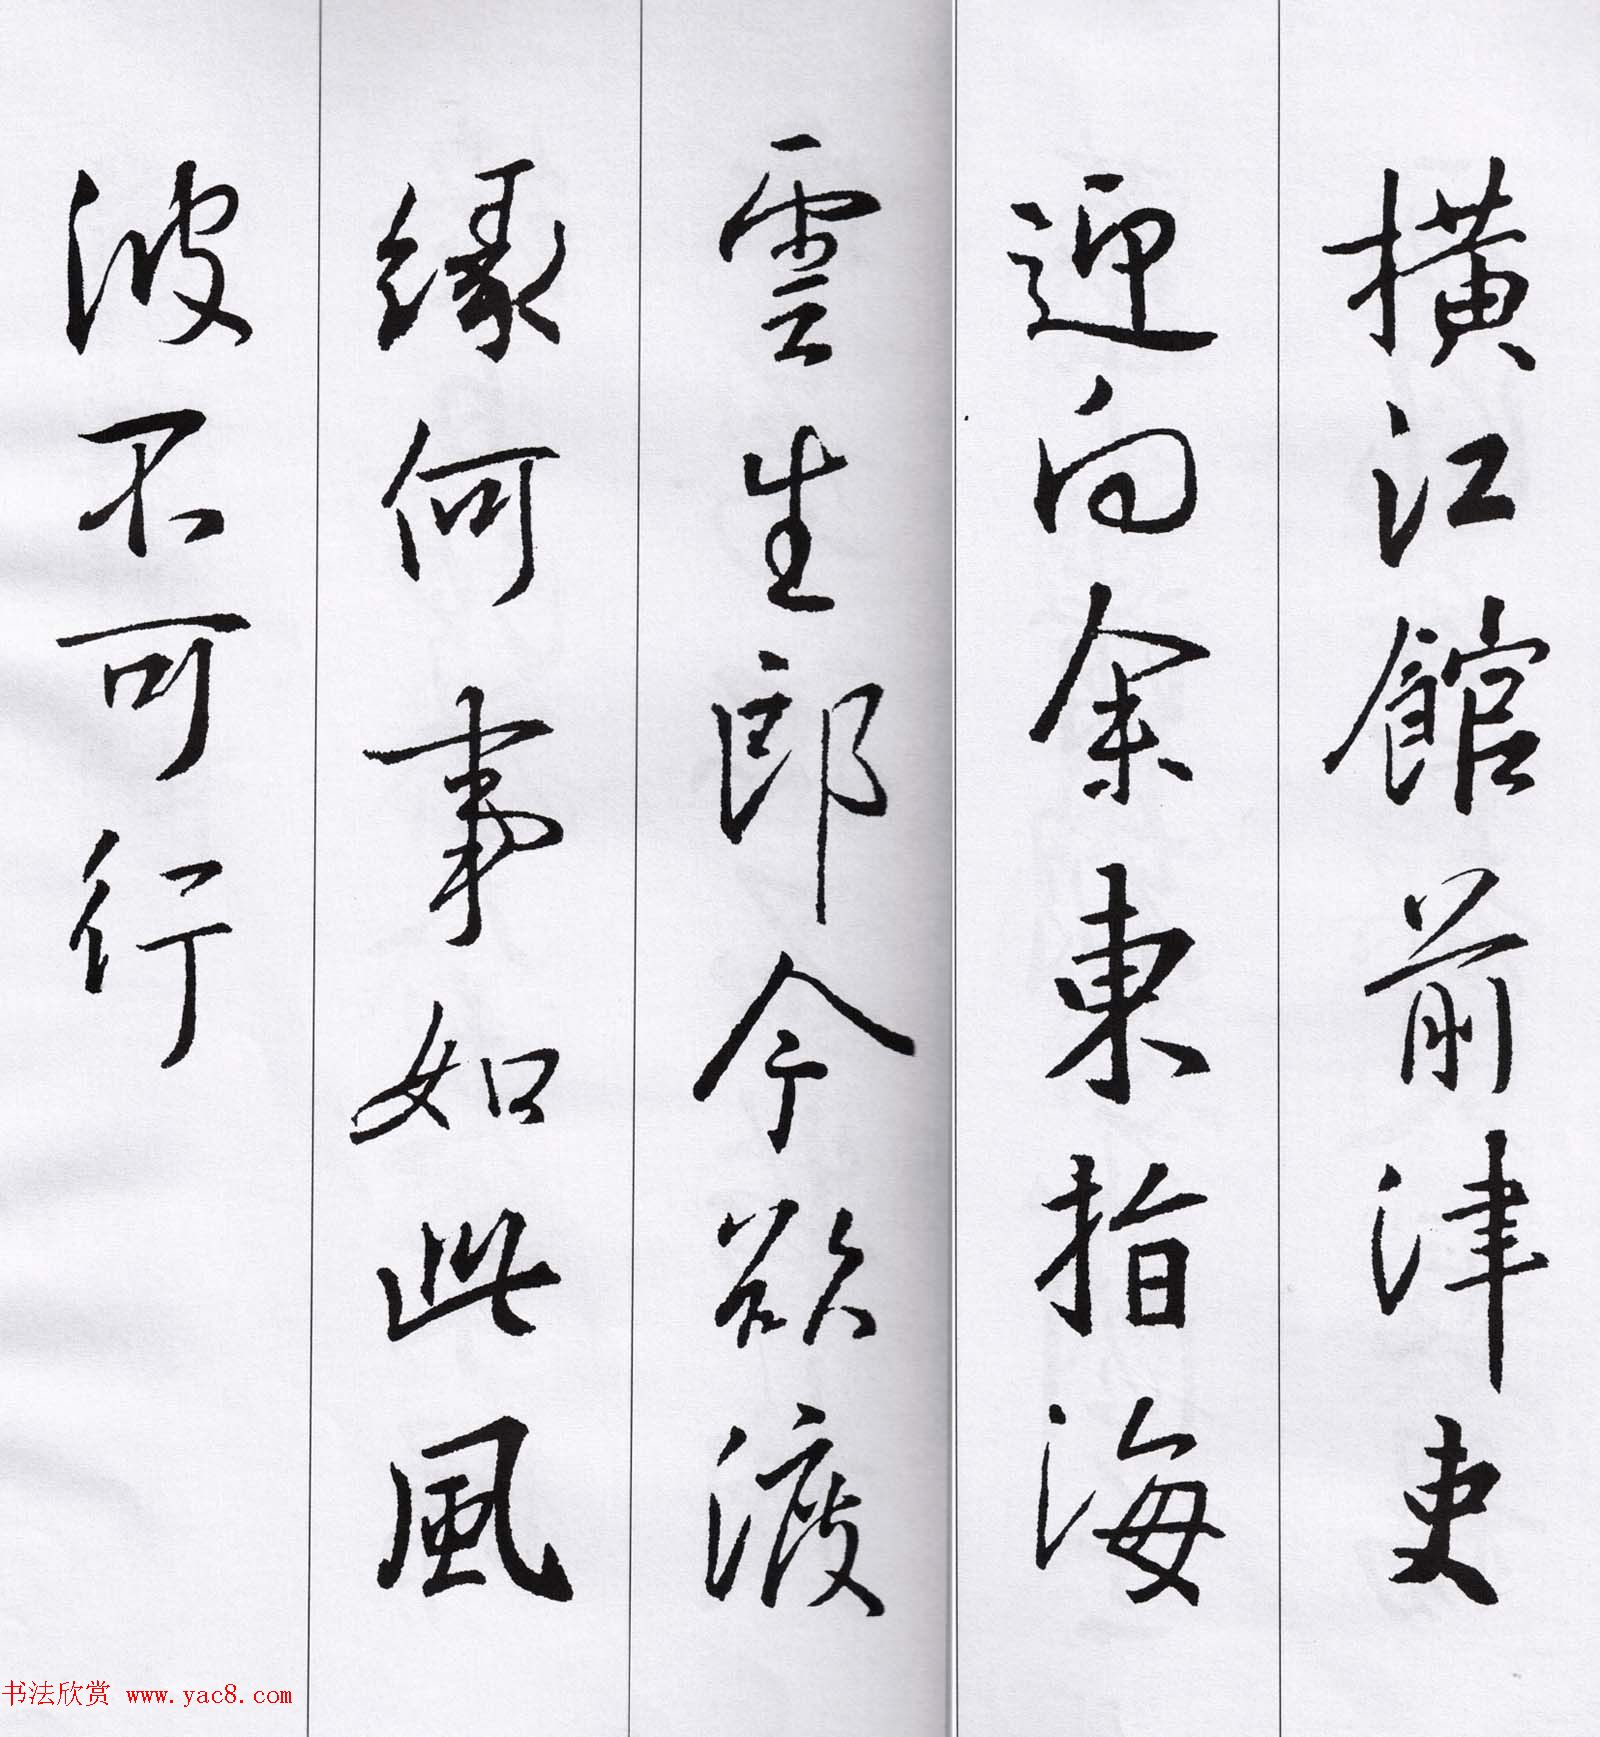 横江館前津吏
迎向余東指海
雲生郎今欲渡
緣何事如此風
波不可行
书法欣赏 www.yac8.com